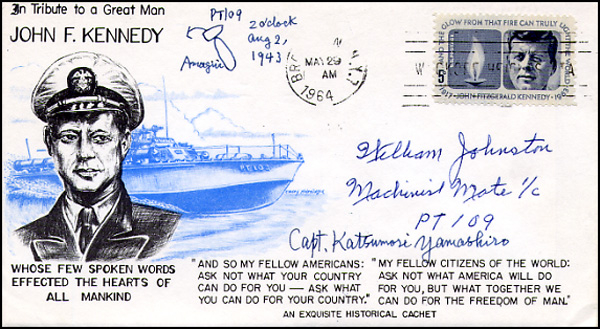 In Tribute to a Great Man
JOHN F. KENNEDY
PT/09
2 o'clock
Aug 2,
1943
MAY 29
AM
1964
AND THE GLOW FROM THAT FIRE CAN TRULY LIGHT THE WORLD
5¢
1917 · JOHN FITZGERALD KENNEDY · 1963
William Johnston
Machinist Mate 1/c
PT 109
Capt. Katsumori Yamashiro
WHOSE FEW SPOKEN WORDS
EFFECTED THE HEARTS OF
ALL MANKIND
"AND SO MY FELLOW AMERICANS:
ASK NOT WHAT YOUR COUNTRY
CAN DO FOR YOU — ASK WHAT
YOU CAN DO FOR YOUR COUNTRY."
"MY FELLOW CITIZENS OF THE WORLD:
ASK NOT WHAT AMERICA WILL DO
FOR YOU, BUT WHAT TOGETHER WE
CAN DO FOR THE FREEDOM OF MAN."
AN EXQUISITE HISTORICAL CACHET